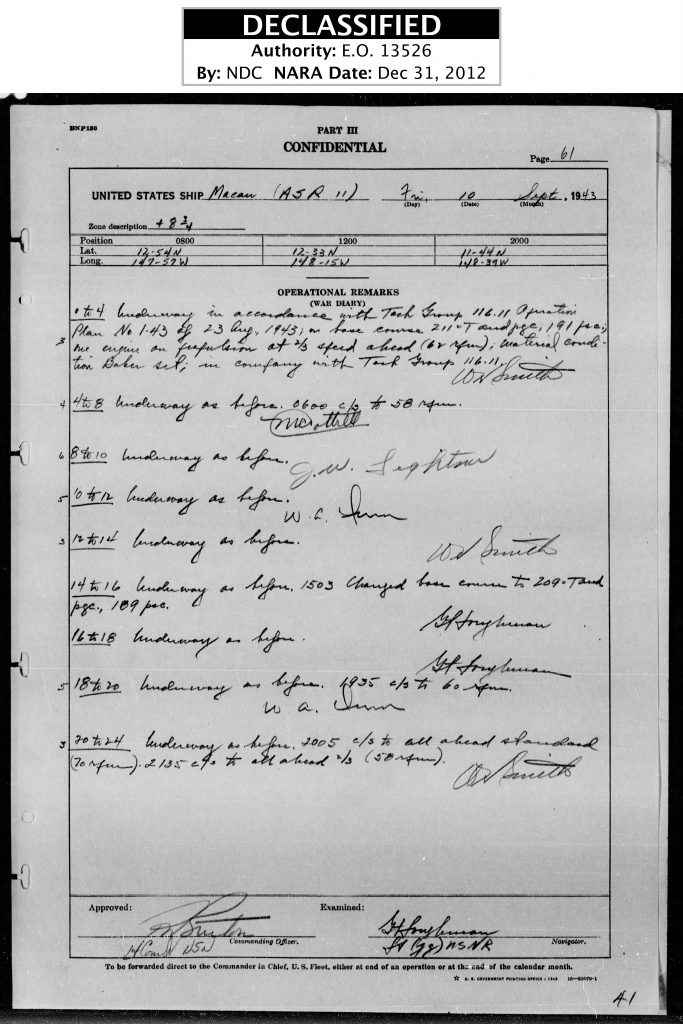 DECLASSIFIED
Authority: E.O. 13526
By: NDC NARA Date: Dec 31, 2012
BNP186
PART III
CONFIDENTIAL
Page 61
UNITED STATES SHIP Macaw (ASR 11) Fri, 10 Sept, 1943
(Day) (Date) (Month)
Zone description + 8 3/4
Position 0800 1200 2000
Lat. 12-54N 12-33N 11-44N
Long. 147-57W 148-15W 148-39W
OPERATIONAL REMARKS
(WAR DIARY)
0 to 4 Underway in accordance with Task Group 116.11 Operation
Plan No 1-43 of 23 Aug, 1943; on base course 211°T and pgc, 191 psc;
3 one engine on propulsion at 2/3 speed ahead (62 rpm); material condi-
tion Baker set; in company with Task Group 116.11.
W Smith
4 4 to 8 Underway as before. 0600 c/s to 58 rpm.
6 8 to 10 Underway as before.
J.W.
5 10 to 12 Underway as before.
W. A. Dunn
3 12 to 14 Underway as before.
W Smith
14 to 16 Underway as before. 1503 Changed base course to 209°T and
pgc., 189 psc.
G Loughman
16 to 18 Underway as before.
G Loughman
5 18 to 20 Underway as before. 1935 c/s to 60 rpm.
W A. Dunn
3 20 to 24 Underway as before. 2005 c/s to all ahead standard
(70 rpm). 2135 c/s to all ahead 2/3 (58 rpm).
W Smith
Approved: Examined:
Burton G Loughman
Lt Comdr USN Commanding Officer. Lt (jg) USNR Navigator.
To be forwarded direct to the Commander in Chief, U. S. Fleet, either at end of an operation or at the end of the calendar month.
☆ U. S. GOVERNMENT PRINTING OFFICE : 1943
41